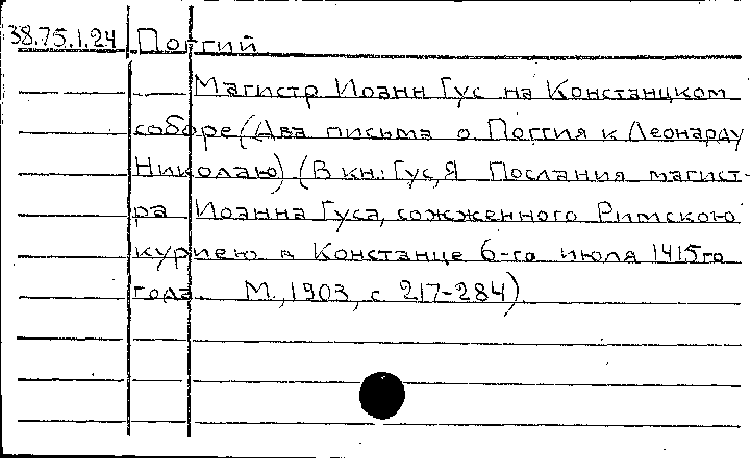 38.75.1.24 Поггий
Магистр Иоанн Гус на Констанцком
соборе (Два письма о. Поггия к Леонарду
Николаю) (В кн.: Гус, Я Послания магист-
ра Иоанна Гуса, сожженного Римскою
куриею в Констанце 6-го июля 1415го
года. М., 1903, с 217-284)